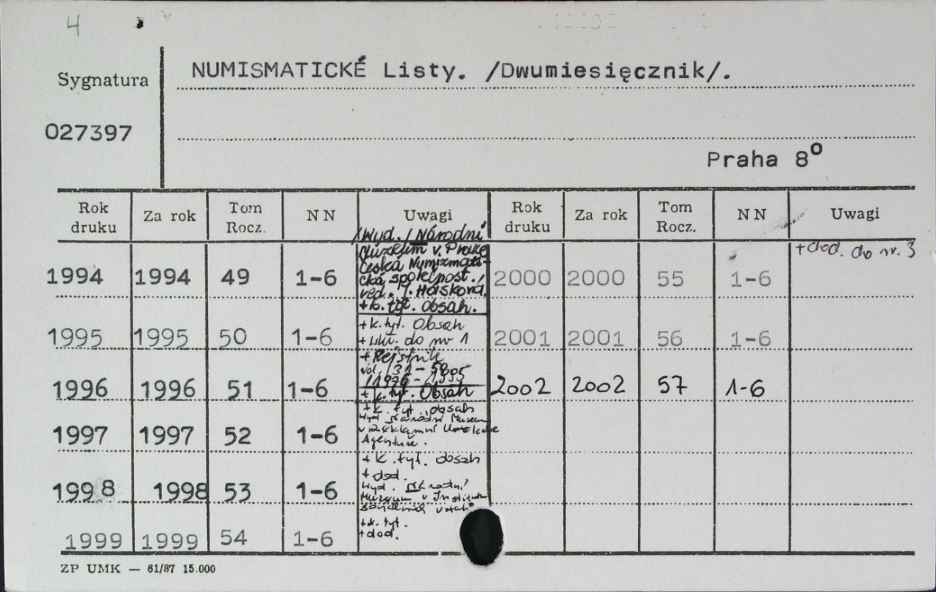 4
Sygnatura
NUMISMATICKÉ Listy. /Dwumiesięcznik/.
027397
Praha 8⁰
Rok druku Za rok Tom Rocz. NN Uwagi Rok druku Za rok Tom Rocz. NN Uwagi
/Wyd. / Národní
Muzeum v. Praze
Česká Numizmati-
cká společnost./
red. J. Hásková.
+ k. tyt. Obsah.
1994 1994 49 1-6
2000 2000 55 1-6 +dod. do nr. 3
1995 1995 50 1-6 + k. tyt. Obsah
do nr 1
2001 2001 56 1-6
+ Rejstřík
vol.
1996 1996 51 1-6 + k. tyt. Obsah
2002 2002 57 1-6
1997 1997 52 1-6 + k. tyt. obsah
+ k. tyt. obsah
+ dod.
1998 1998 53 1-6
1999 1999 54 1-6 + k. tyt.
+ dod.
ZP UMK — 61/87 15.000